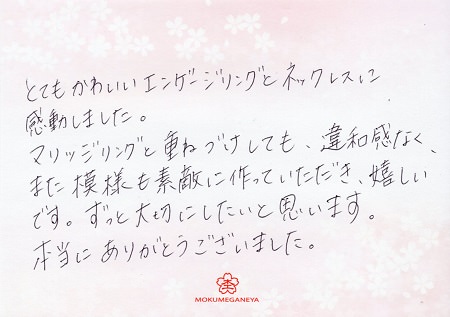 とてもかわいいエンゲージリングとネックレスに
感動しました。
マリッジリングと重ねづけしても、違和感なく、
また模様も素敵に作っていただき、嬉しい
です。ずっと大切にしたいと思います。
本当にありがとうございました。
MOKUMEGANEYA